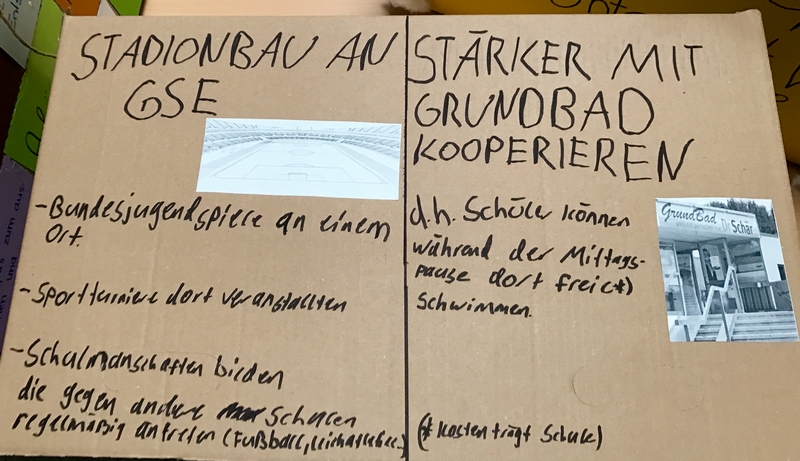 STADIONBAU AN
GSE
-Bundesjugendspiele an einem
Ort.
-Sportturniere dort veranstallten
-Schulmanschaften bieden
die gegen andere Schulen
regelmäßig antreten (Fußball, leichatlethe..)
STÄRKER MIT
GRUNDBAD
KOOPERIEREN
d.h. Schüler können
während der Mittags-
pause dort frei(*)
Schwimmen.
GrundBad
Schär
(* Kosten trägt Schule)